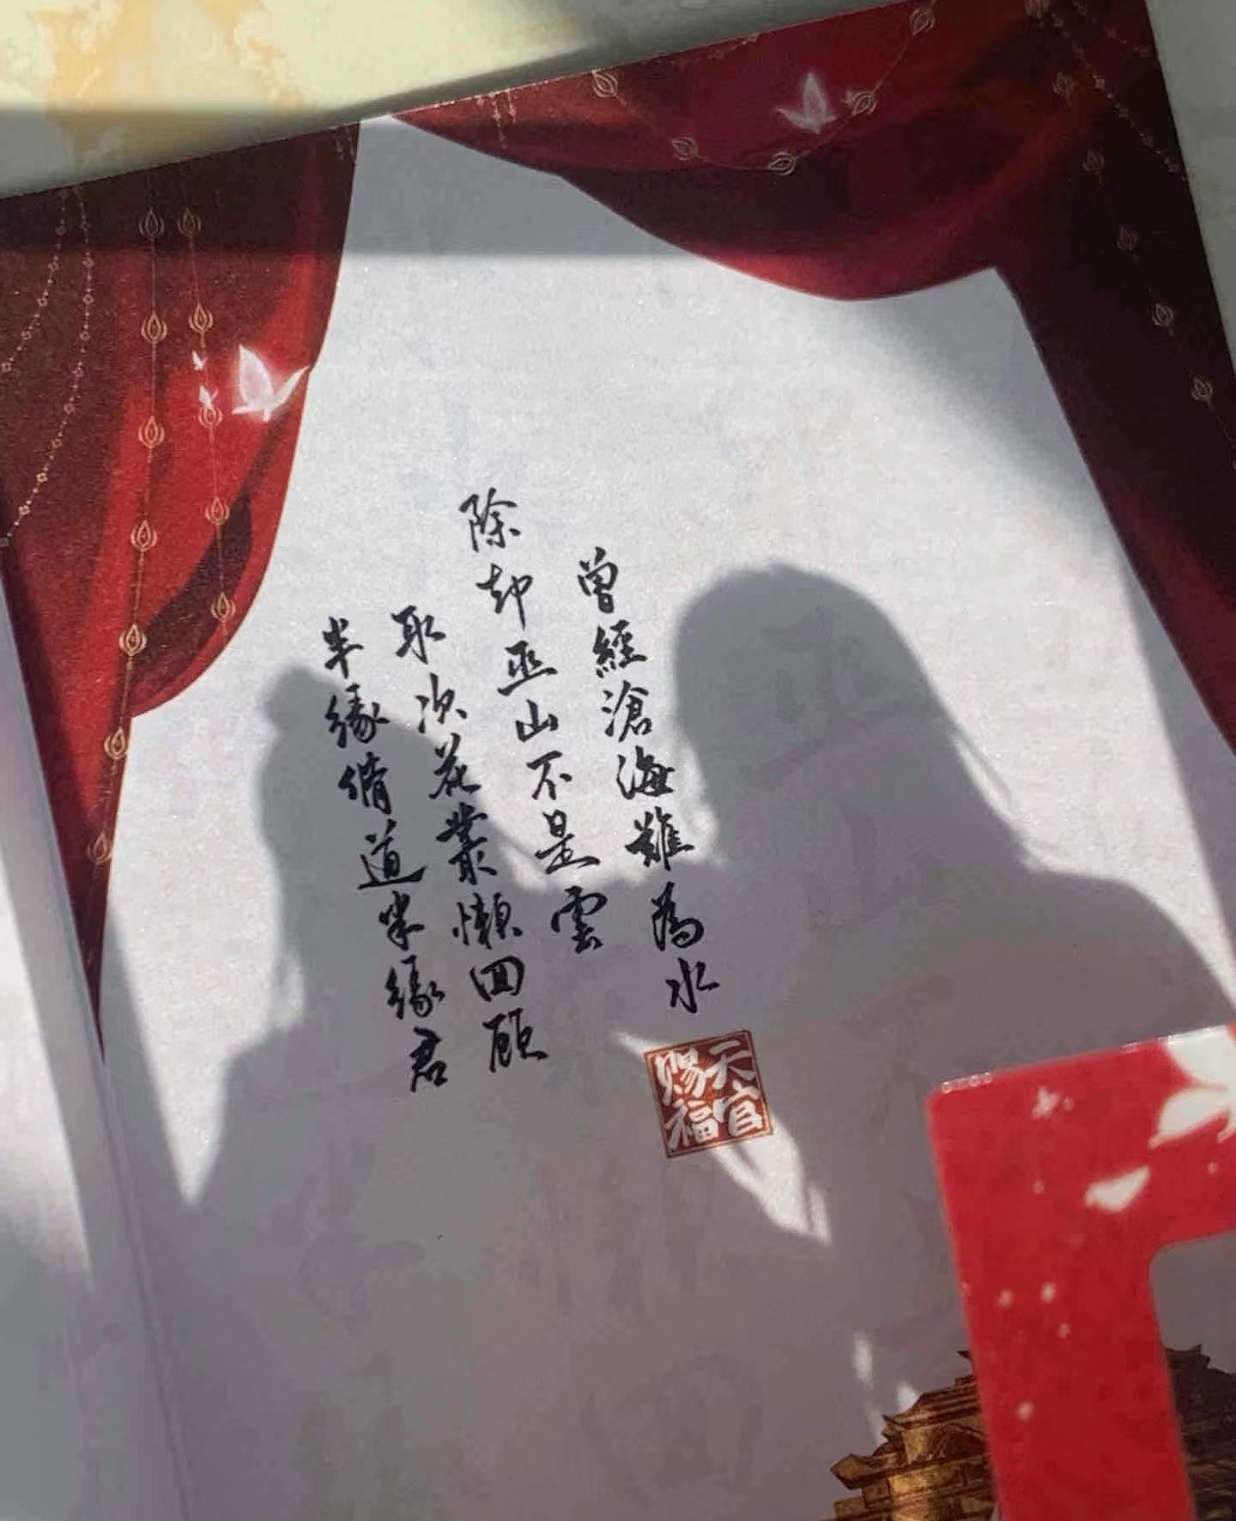 曾經滄海難為水
除却巫山不是雲
取次花叢懶回顧
半緣脩道半緣君
天官
赐福